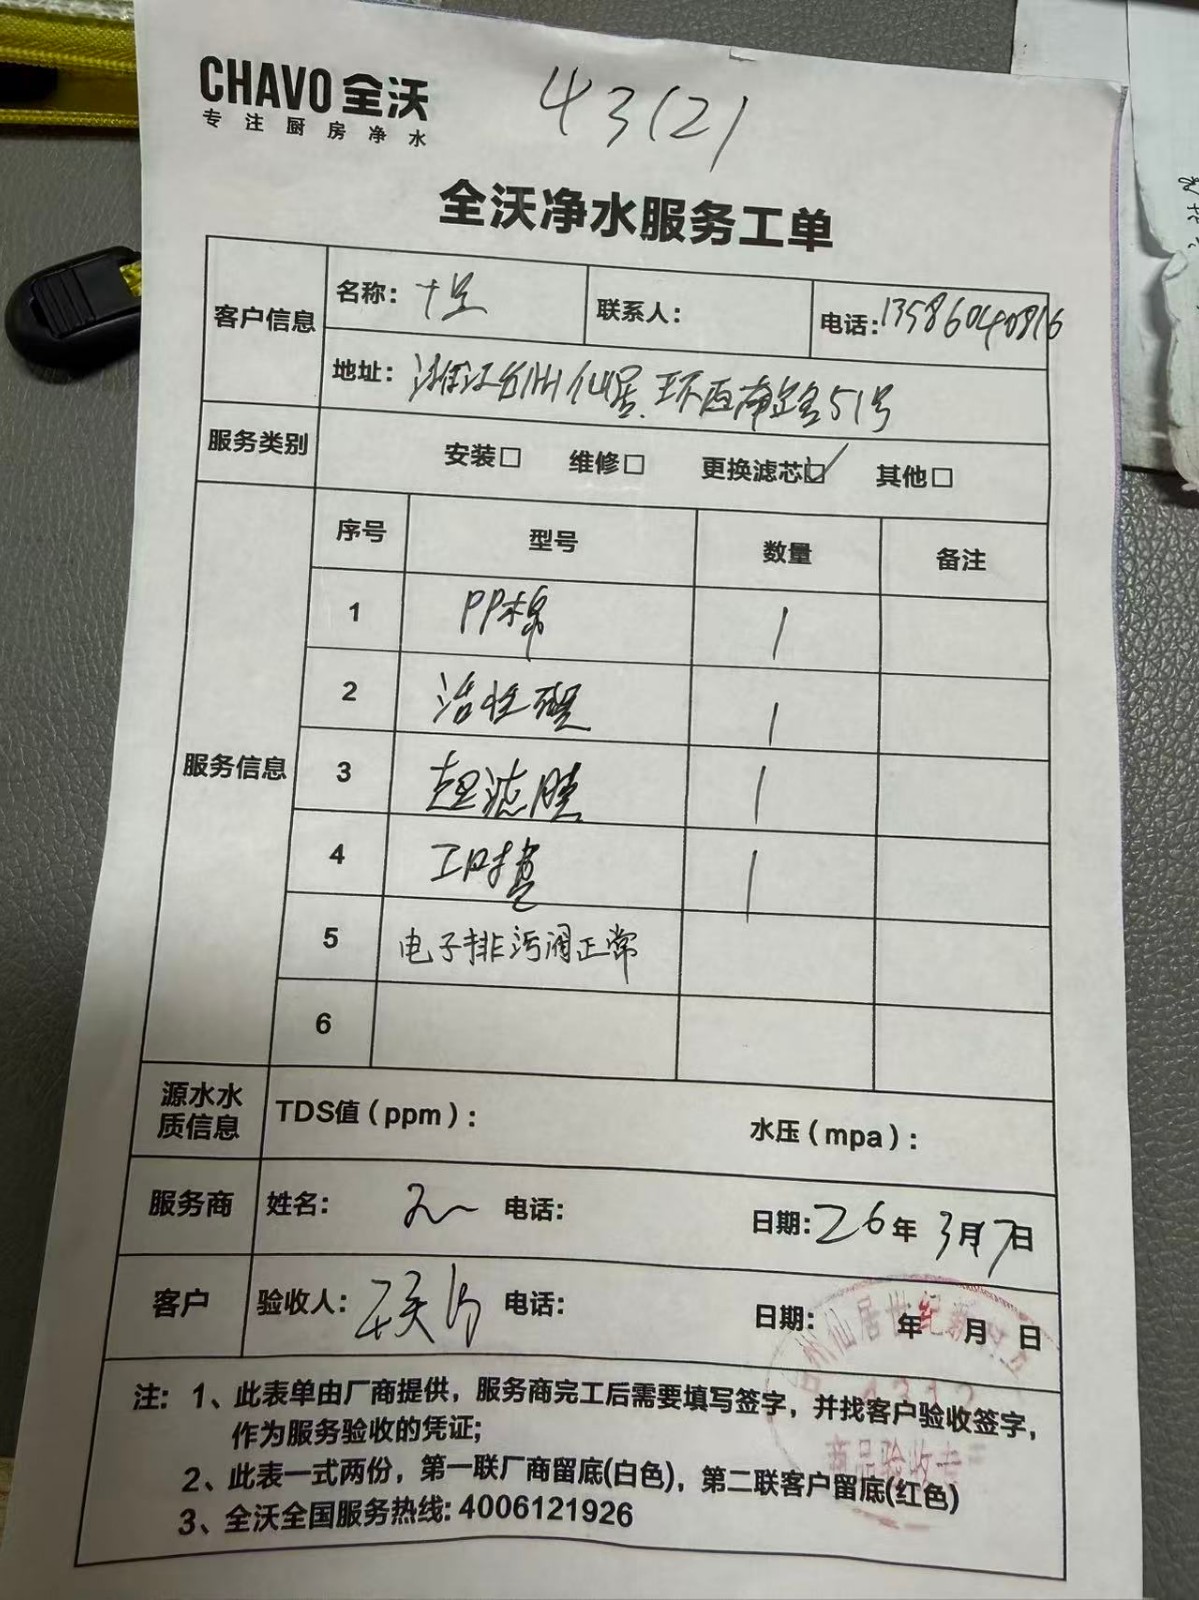 CHAVO 全沃
专注厨房净水
43121
全沃净水服务工单
客户信息 名称: 联系人: 电话:13586040816
地址: 浙江台州仙居 环西南路51号
服务类别 安装□ 维修□ 更换滤芯☑ 其他□
服务信息 序号 型号 数量 备注
1 PP棉 1
2 活性碳 1
3 超滤膜 1
4 1
5 电子排污阀正常
6
源水水质信息 TDS值(ppm): 水压(mpa):
服务商 姓名: 电话: 日期:26年3月7日
客户 验收人: 电话: 日期: 年 月 日
州仙居世纪新
商品验收专
注: 1、此表单由厂商提供，服务商完工后需要填写签字，并找客户验收签字，
作为服务验收的凭证;
2、此表一式两份，第一联厂商留底(白色)，第二联客户留底(红色)
3、全沃全国服务热线: 4006121926